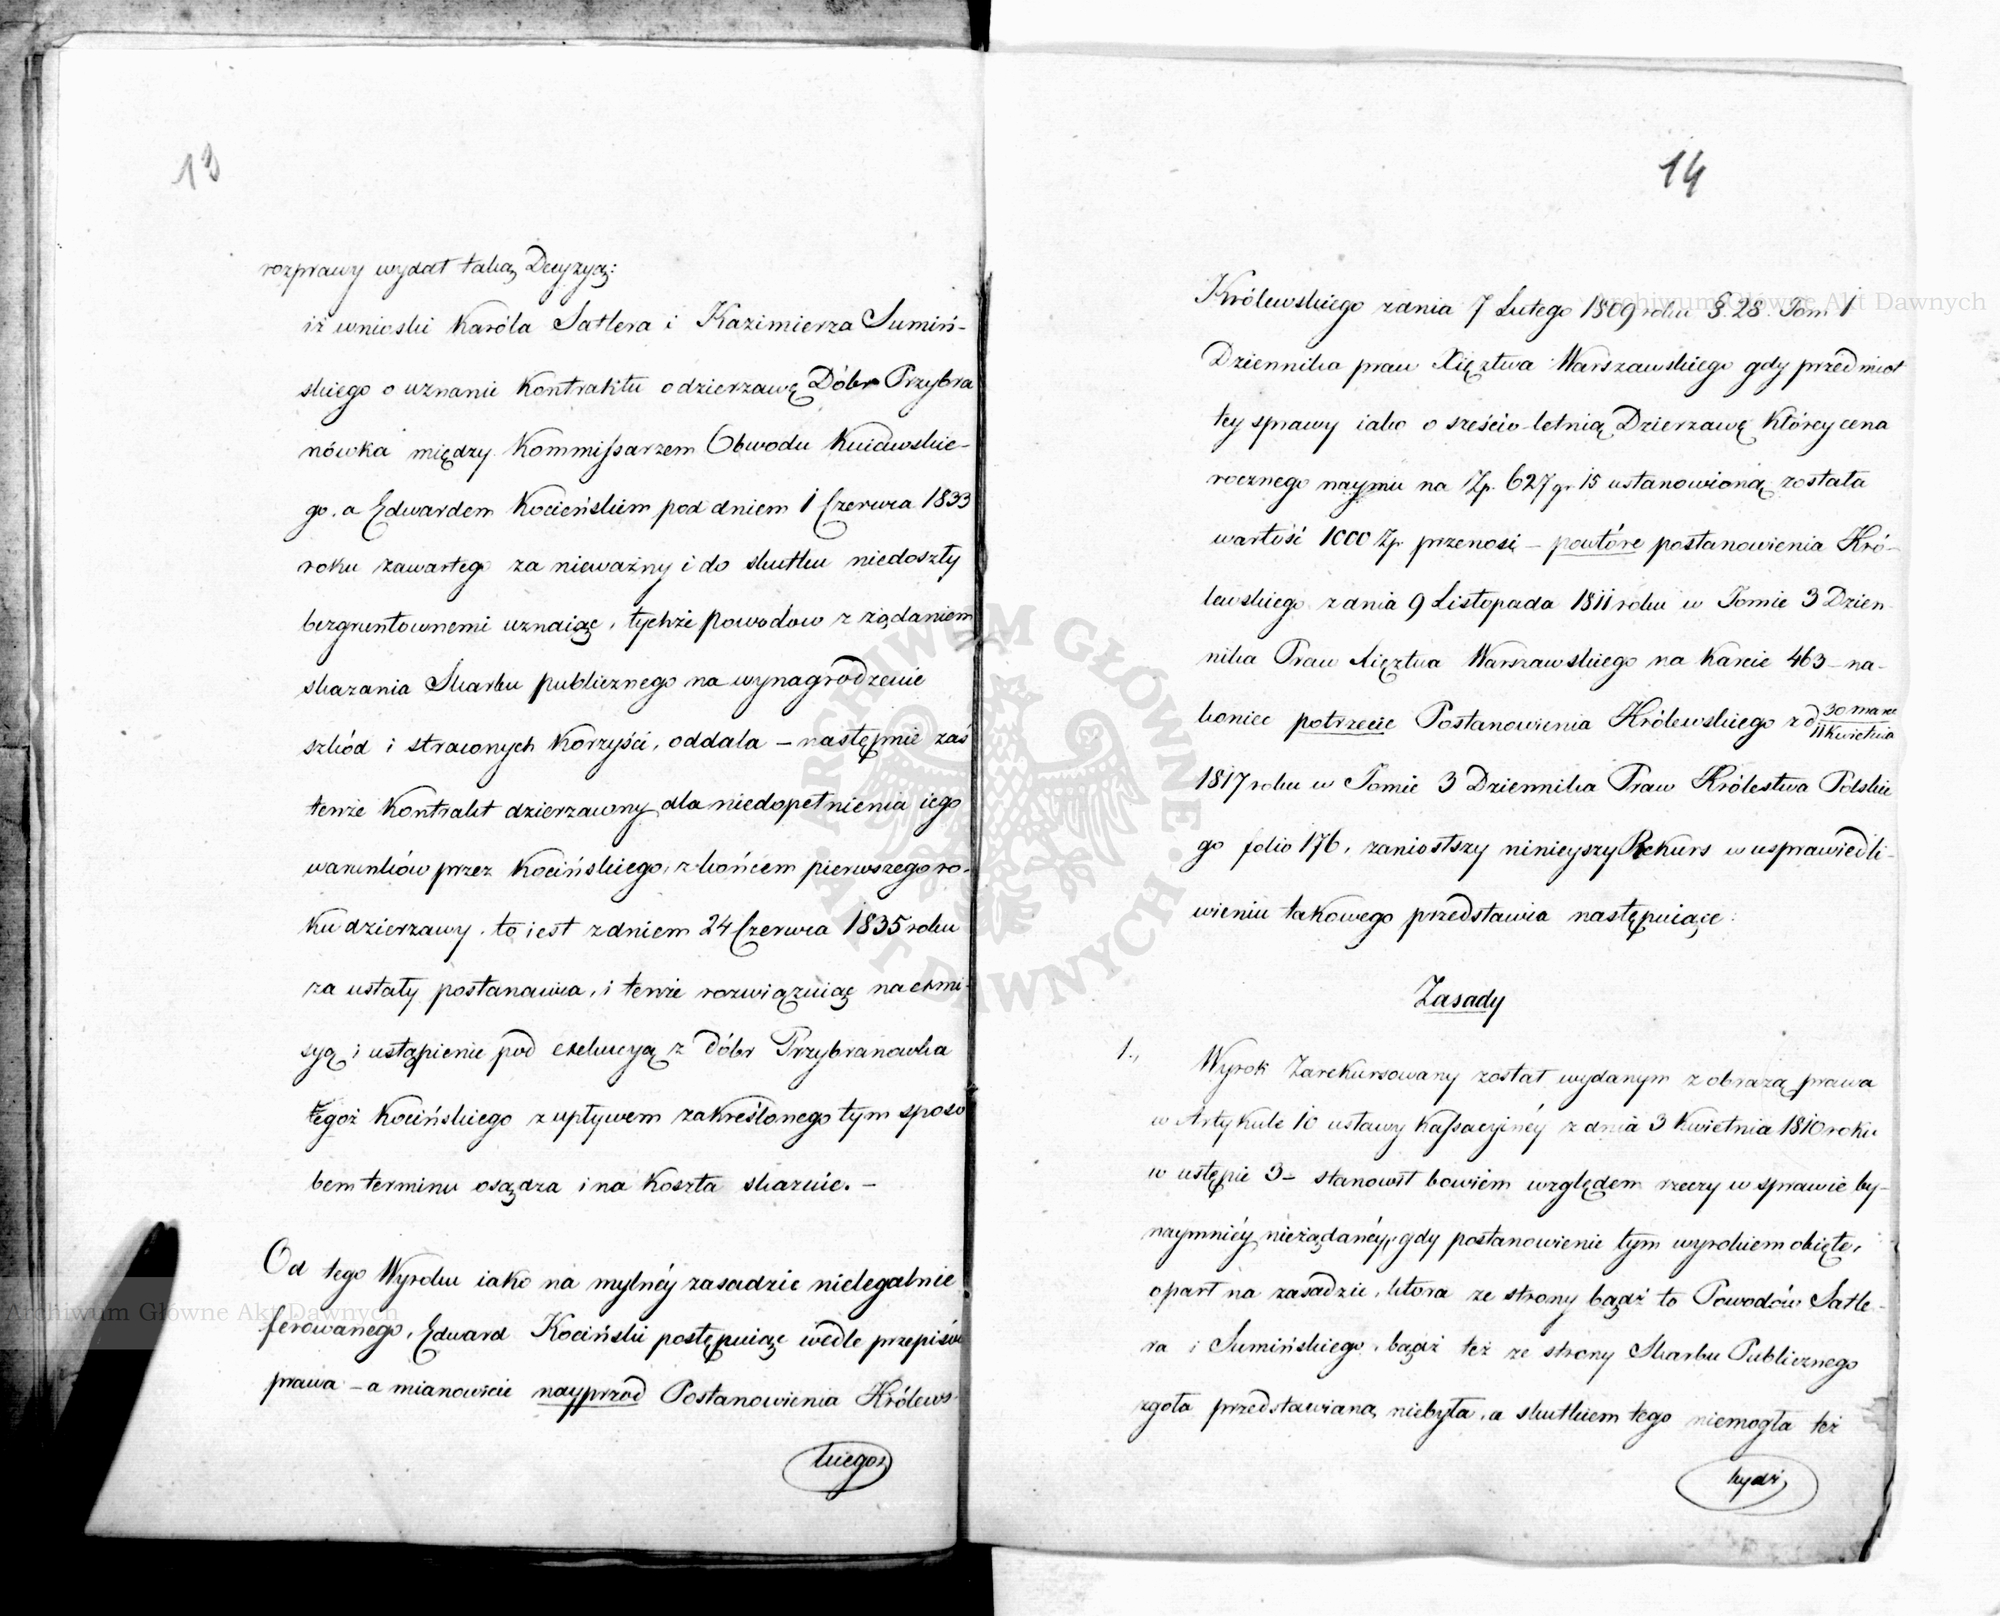 13
rozprawy wydał taką Decyzyą:
iż wnioski Karóla Satlera i Kazimierza Sumiń-
skiego o uznanie Kontraktu o dzierzawę Dóbr Przybra
nówka między Kommissarzem Obwodu Kuiawskie-
go, a Edwardem Kocieńskim pod dniem 1 Czerwca 1833
roku zawartego za nieważny i do skutku niedoszły
bezgruntownemi uznaiąc, tychże powodow z żądaniem
skazania Skarbu publicznego na wynagrodzenie
szkód i straconych korzyści, oddala – następnie zaś
tenże Kontrakt dzierzawny dla niedopełnienia iego
warunków przez Kocińskiego, z końcem pierwszego ro-
ku dzierzawy, to iest z dniem 24 Czerwca 1835 roku
za ustały postanawia, i tenże rozwiązuiąc na exmi-
syą i ustąpienie pod exekucyą z dóbr Przybranowka
tegoż Kocińskiego z upływem zakreślonego tym sposo
bem terminu osądza i na koszta skazuie. –
Od tego Wyroku iako na mylnéy zasadzie nielegalnie
ferowanego, Eduard Kociński postępuiąc wedle przepisów
prawa – a mianowicie nayprzod Postanowienia Królews-
kiego
14
Królewskiego z dnia 7 Lutego 1809 roku §. 28. Tom 1
Dziennika praw Xięztwa Warszawskiego gdy przedmiot
tey sprawy iako o sześcio-letnią Dzierzawę którey cena
rocznego naymu na Zp. 627 gr 15 ustanowioną została
wartość 1000 Zp. przenosi – powtóre postanowienia Kró-
lewskiego z dnia 9 Listopada 1811 roku w Tomie 3 Dzien-
nika Praw Xięztwa Warszawskiego na karcie 463 – na-
koniec potrzecie Postanowienia Królewskiego z d 30 marca
11 Kwietnia
1817 roku w Tomie 3 Dziennika Praw Królestwa Polskie
go folio 176, zaniosłszy ninieyszy Rekurs w usprawiedli-
wieniu takowego przedstawia następuiące:
Zasady
1., Wyrok Zarekursowany został wydanym z obrazą prawa
w Artykule 10 ustawy kassacyinéy z dnia 3 Kwietnia 1810 roku
w ustępie 3 – stanowił bowiem względem rzeczy w sprawie by-
naymniéy nieżądanéy, gdy postanowienie tym wyrokiem obięte,
oparł na zasadzie, która ze strony bądź to Powodów Satle-
ra i Sumińskiego, bądź też ze strony Skarbu Publicznego
zgoła przedstawianą niebyła, a skutkiem tego niemogła też
Archiwum Główne Akt Dawnych
Archiwum Główne Akt Dawnych
ARCHIWUM GŁÓWNE · AKT DAWNYCH ·